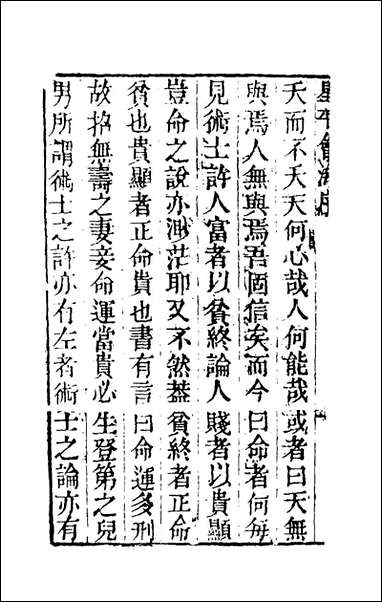 星平會海序
夭而不夭天何心哉人何能哉或者曰天無
與焉人無與焉吾固信矣而今曰命者何每
見術士許人富者以貧終論人賤者以貴顯
豈命之說亦渺茫耶又不然蓋貧終者正命
貧也貴顯者正命貴也書有言曰命運多刑
故招無壽之妻妾命運當貴必生登第之兒
男所謂術士之許亦有左者術士之論亦有